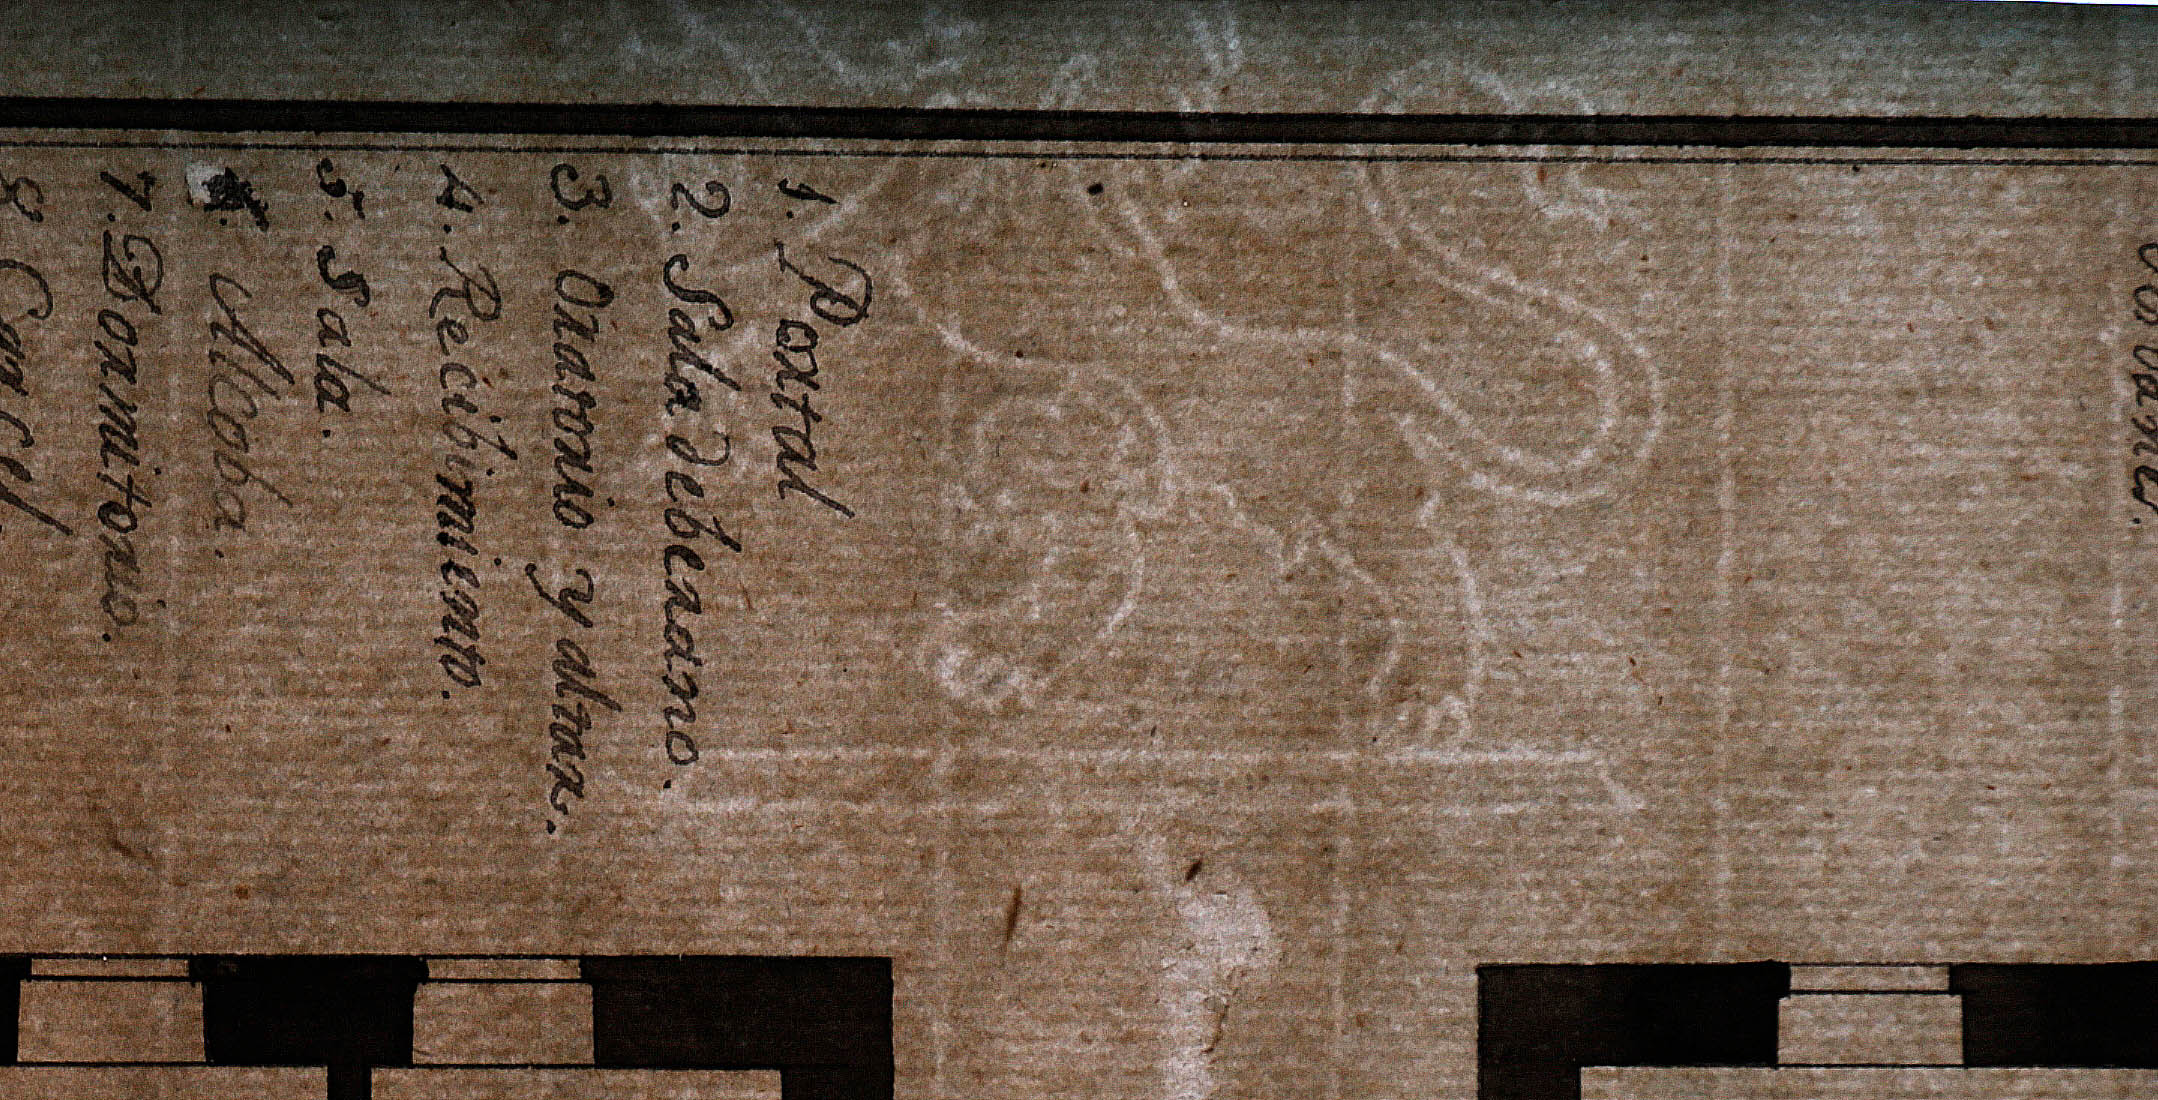 1. Portal
2. Sala de berano.
3. Oratorio y altar.
4. Recibimiento.
5. Sala.
Alcoba.
7. Dormitorio.
8. Carcel.